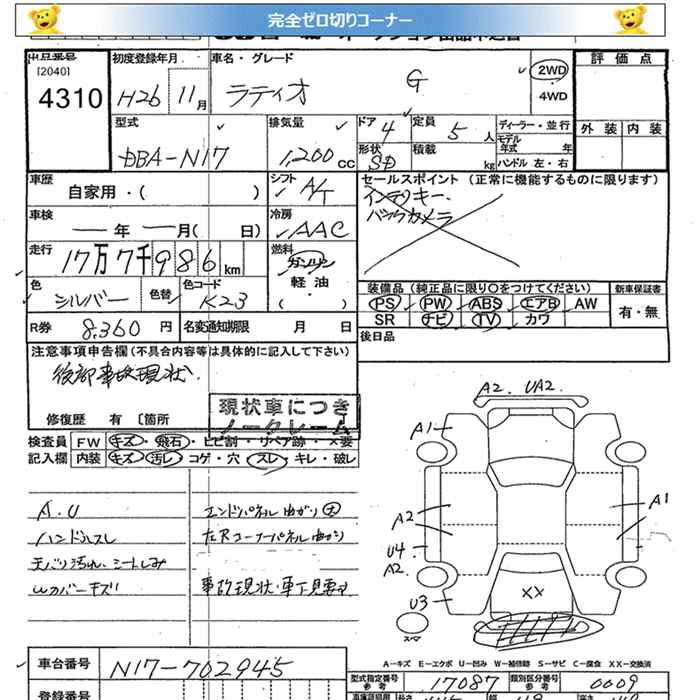 完全ゼロ切りコーナー
出品番号 初度登録年月 車名・グレード 評価点
[2040]
4310 H26 11月 ラティオ G 2WD
4WD
外装 内装
型式 排気量 ドア 4 定員 5人 ディーラー・並行
モデル年式 年
DBA-N17 1,200CC 形状 SD 積載 kg ハンドル 左・右
車歴 シフト A/T セールスポイント (正常に機能するものに限ります)
自家用・( ) インテリキー.
バックカメラ
車検 ー年ー月( 日) 冷房 AAC
走行 17万7千986km 燃料 ガソリン
軽油・
( )
色 シルバー 色替 色コード K23
装備品(純正品に限り○をつけてください) 新車保証書
PS PW ABS エアB AW 有・無
SR ナビ TV カワ
R券 8,360円 名変通知期限 月 日 後日品
注意事項申告欄(不具合内容等は具体的に記入して下さい)
後部事故現状.
現状車につき
ノークレーム
修復歴 有 〔箇所
検査員 FW キズ・飛石・ヒビ割・リペア跡・×要
記入欄 内装 キズ・汚レ・コゲ・穴・スレ・キレ・破レ
A.U エンドパネル曲がり大
ハンドルスレ 左Rコーナーパネル曲がり
天バリ汚れ、シートしみ
Wカバーキズ 事故現状・車下見要す
A2. UA2.
A1
A2
U4
A2
U3
A1
XX
スペア
車台番号 N17-702945
A-キズ E-エクボ U-凹み W-補修跡 S-サビ C-腐食 XX-交換済
型式指定番号 参考 17087 類別区分番号 参考 0009
登録番号